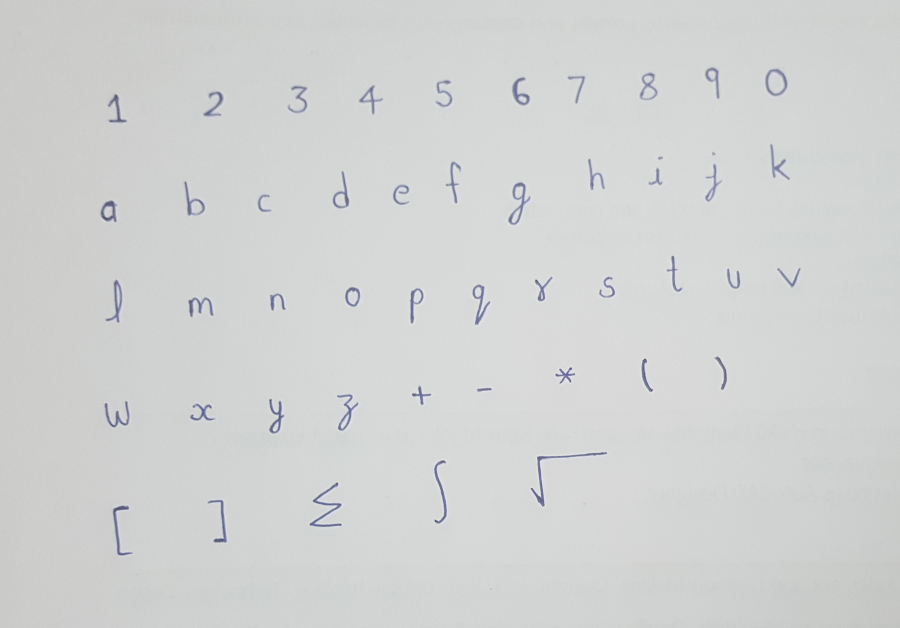 1 2 3 4 5 6 7 8 9 0
a b c d e f g h i j k
l m n o p q r s t u v
w x y z + - * ( )
[ ] Σ ∫ √